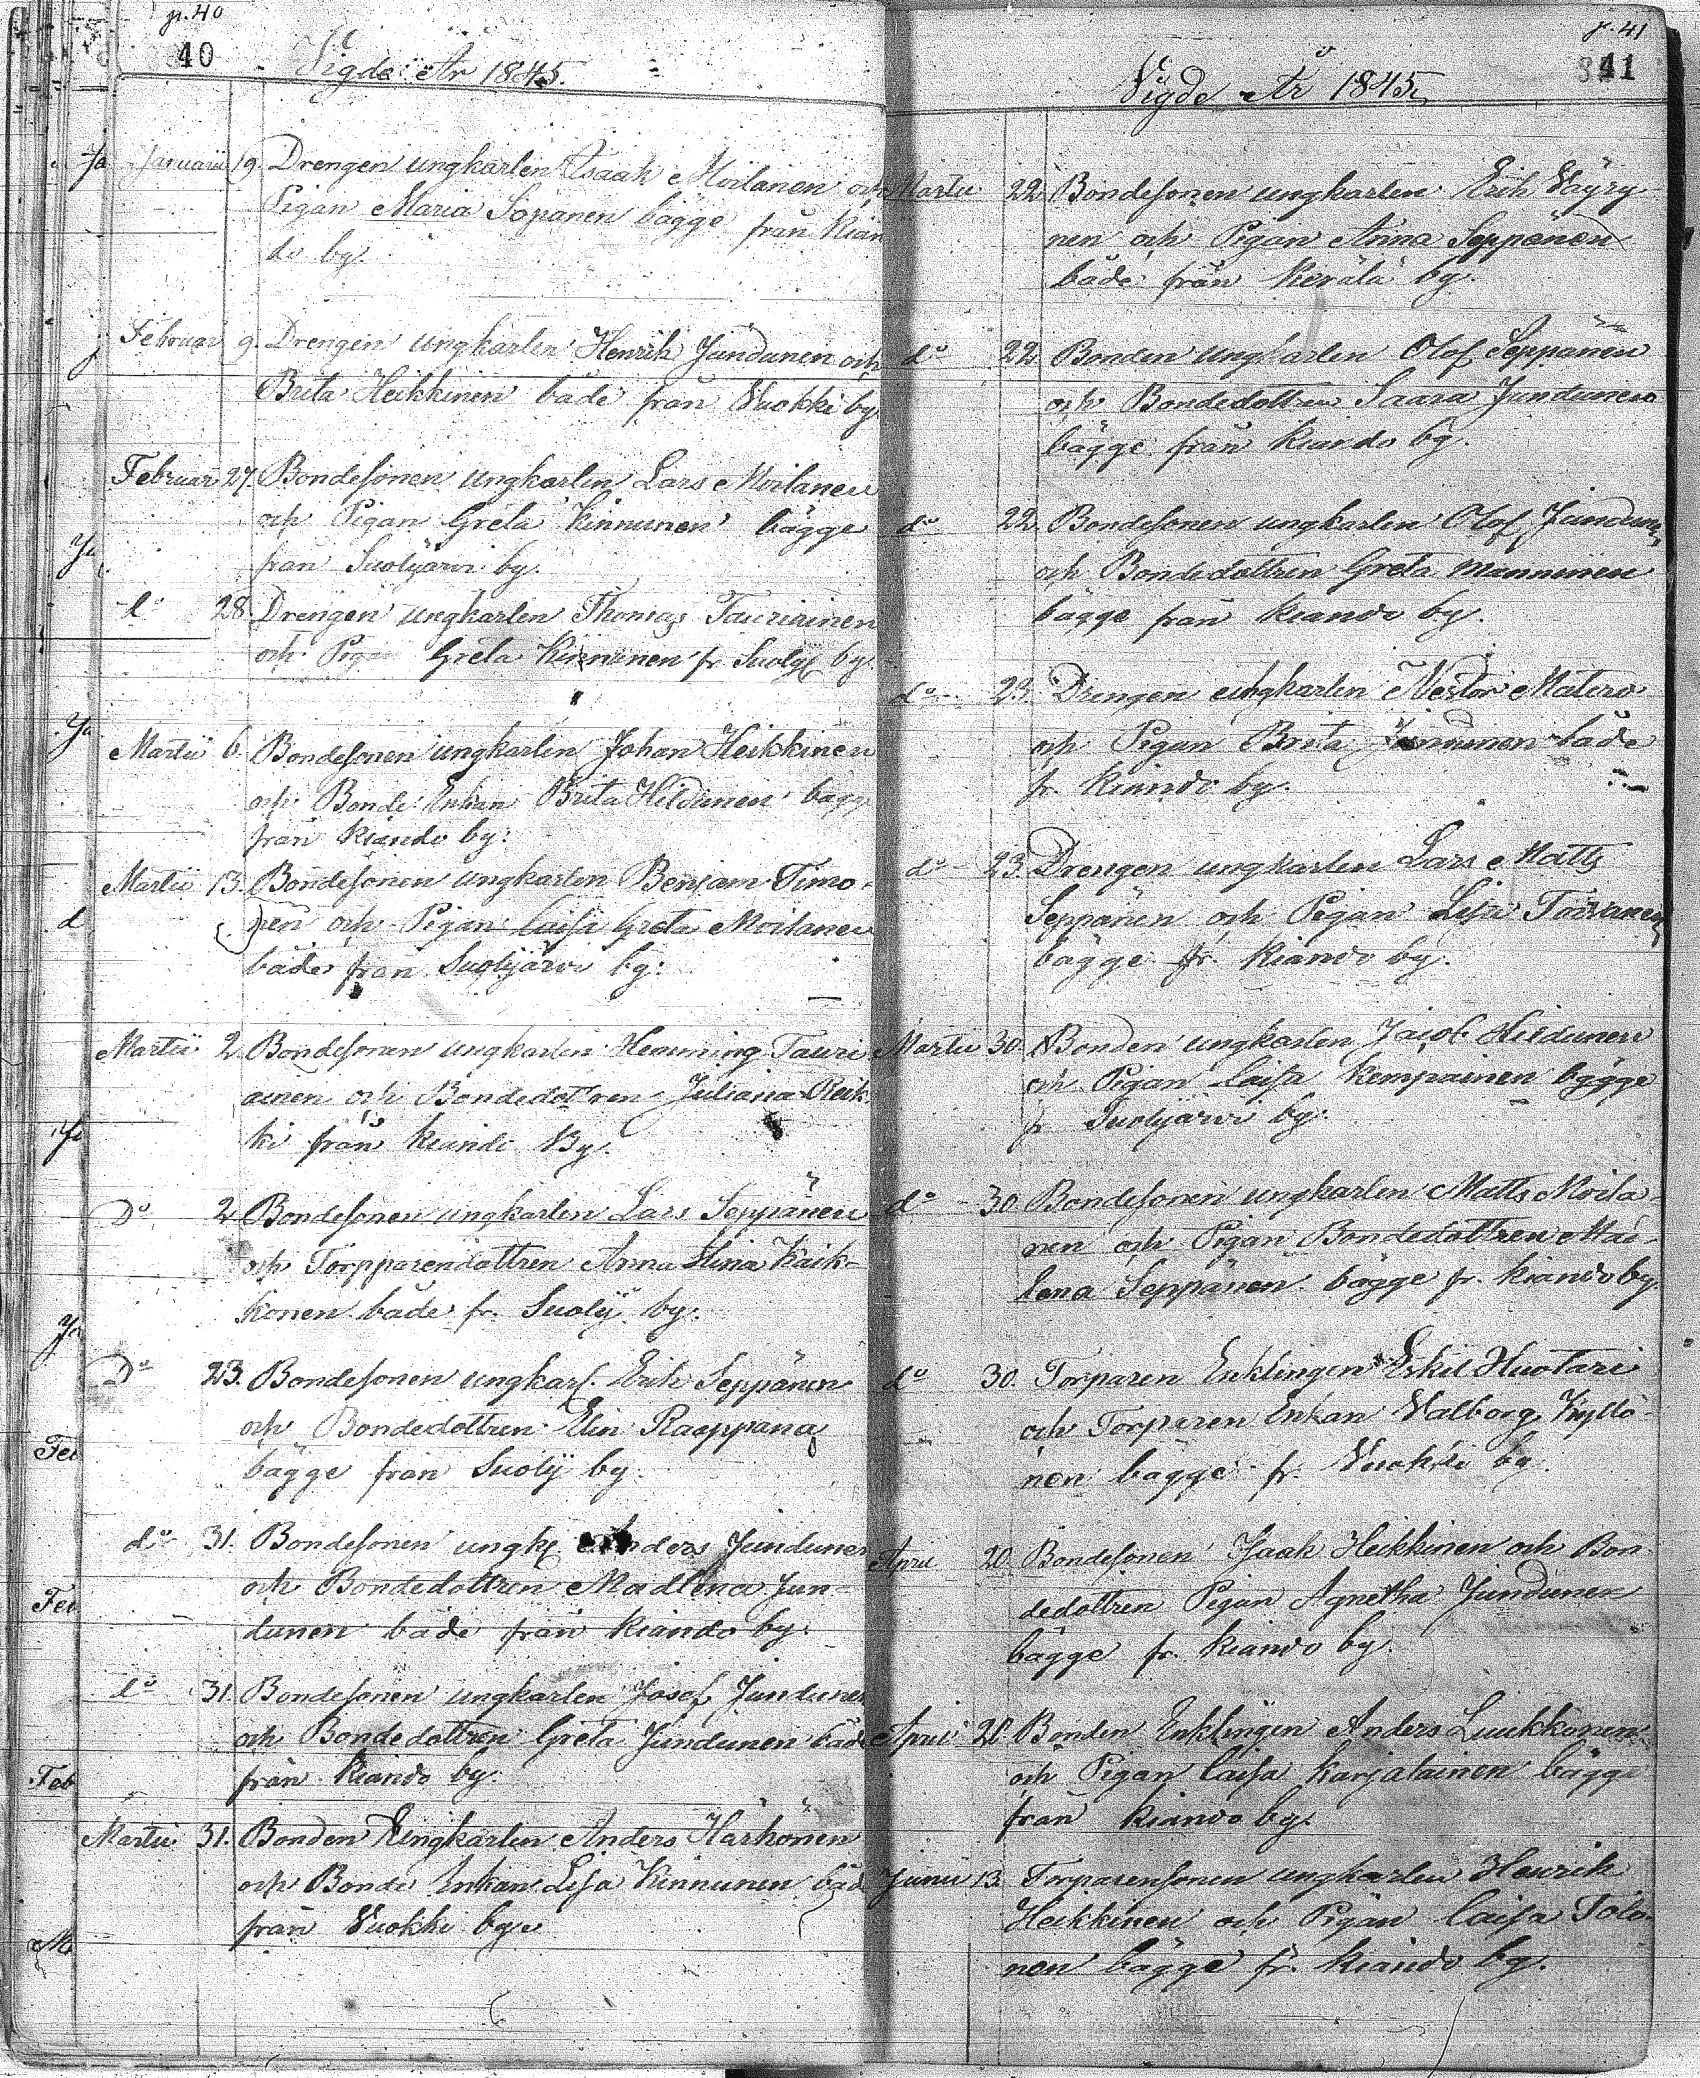 p. 40
40
Vigde År 1845.
Januarii 19. Drengen ungkarlen Isaak Moilanen och
Pigan Maria Sopanen bägge från Kian
do by.
Februar 9. Drengen ungkarlen Henrik Jundunen och
Brita Heikkinen både från Vuokki by
Februar 27. Bondesonen ungkarlen Lars Moilanen
och Pigan Greta Kinnunen bägge
från Suolijärvi by.
do 28. Drengen ungkarlen Thomas Tauriainen
och Pigan Greta Kinnunen fr Suolij by.
Martii 6. Bondesonen ungkarlen Johan Heikkinen
och Bonde Enkan Brita Hildunen bägg
från Kiando by:
Martii 13. Bondesonen ungkarlen Benjam Timo-
nen och Pigan Caisa Greta Moilanen
både från Suolijärvi by:
Martii 2 Bondesonen ungkarlen Hemming Tauri
ainen och Bondedottren Juliana Keik
ki från Kiando By.
Do 2 Bondesonen ungkarlen Lars Seppänen
och Torpparendottren Anna Stina Kaik-
konen både fr. Suolij by.
Do 23. Bondesonen ungkarl. Erik Seppänen
och Bondedottren Elin Raappana
bägge från Suolij by.
do 31. Bondesonen ungk. Anders Jundunen
och Bondedottren Madlena Jun-
dunen både från Kiando by.
do 31. Bondesonen ungkarlen Josef Jundunen
och Bondedottren Greta Jundunen både
från Kiando by.
Martii 31. Bonden Ungkarlen Anders Härkönen
och Bonde Enkan Lisa Kinnunen båd
från Vuokki by.
p. 41
41
Vigde År 1845.
Martii 22 Bondesonen ungkarlen Erik Väyry
nen och Pigan Anna Seppänen
både från Kerälä by.
do 22 Bonden ungkarlen Olof Seppänen
och Bondedottren Saara Jundunen
bägge från Kiando by.
do 22 Bondesonen ungkarlen Olof Jundunen
och Bondedottren Greta Manninen
bägge från Kiando by.
do 23. Drengen ungkarlen Nestor Matero
och Pigan Brita Jundunen både
fr. Kiando by.
do 23. Drengen ungkarlen Lars Matts
Seppänen och Pigan Lisa Torvinen
bägge fr. Kiando by.
Martii 30. Bonden ungkarlen Jacob Hildunen
och Pigan Caisa Kempainen bägge
fr Suolijärvi by.
do 30 Bondesonen ungkarlen Matts Moila-
nen och Pigan Bondedottren Mad-
lena Seppänen bägge fr. Kiando by.
do 30. Torparen Enklingen Eskil Huotari
och Torparen Enkan Valborg Kyllö-
nen bägge fr. Vuokki by
April 20. Bondesonen Isaak Heikkinen och Bon
dedottren Pigan Agnetha Jundunen
bägge fr. Kiando by.
April 20. Bonden Enklingen Anders Luukkonen
och Pigan Caisa Karjalainen bägge
från Kiando by.
Junii 13 Torparensonen ungkarlen Henrik
Heikkinen och Pigan Caisa Tolo-
nen bägge fr. Kiando by.